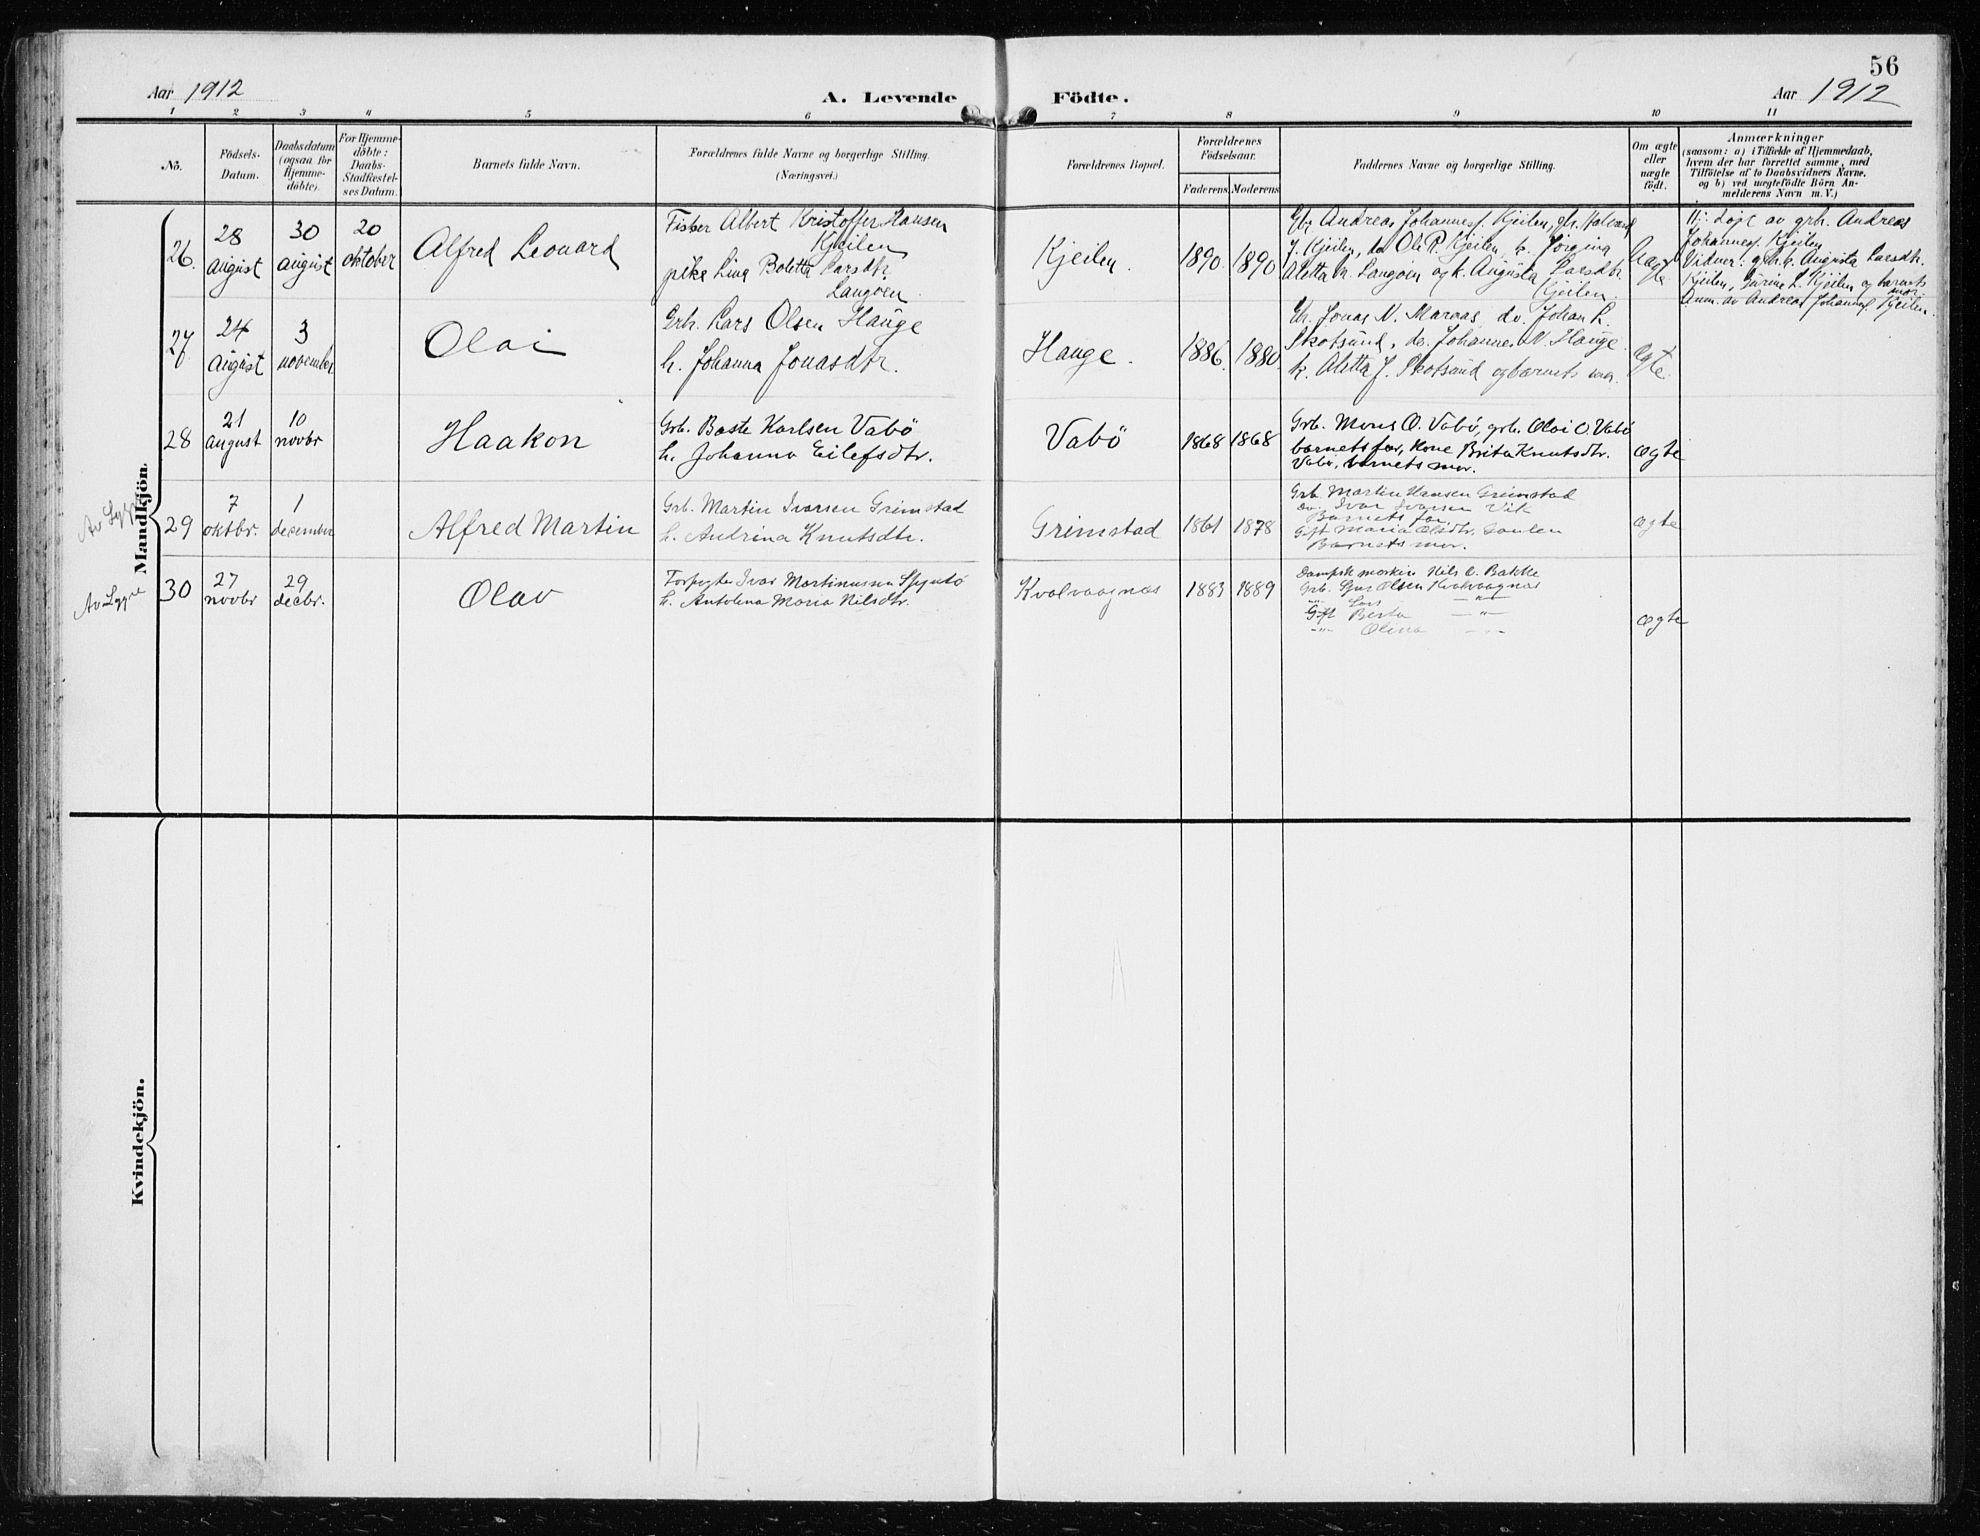 56
Aar 1912
A. Levende Födte.
Aar 1912
1 2 3 4 5 6 7 8 9 10 11
No.
Födsels-
Datum.
Daabsdatum
(ogsaa for
Hjemme-
döbte).
For Hjemme-
döbte:
Daabs-
Stadfæstel-
ses Datum.
Barnets fulde Navn.
Forældrenes fulde Navne og borgerlige Stilling.
(Næringsvei.)
Forældrenes Bopæl.
Forældrenes
Födselsaar.
Faderens. Moderens
Faddernes Navne og borgerlige Stilling.
Om ægte
eller
uægte
födt.
Anmærkninger
(saasom: a) i Tilfælde af Hjemmedaab,
hvem der har forrettet samme, med
Tilföielse af to Daabsvidners Navne.
og b) ved uægtefödte Börn An-
melderens Navn m. V.)
Mandkjön.
26.
28
august
30
august
20
oktober
Alfred Leonard
Fisker Albert Kristoffer Hansen
Kjeilen
pike Lina Boletta Larsdtr.
Langøen.
Kjeilen.
1890. 1890
Gbr Andreas Johannes. Kjeilen, gbr. Halvard
J. Kjeilen, do Ole R. Kjeilen, h. Jørgina
Aletta Langøen og k. Augusta Larsdtr.
Kjeilen.
Uægte
Hj: døpt av grb. Andreas
Johannes. Kjeilen
Vidner: grb.h. Augusta Larsdtr.
Kjeilen, L. Kjeilen og barnets
mor.
Anm. av Andreas Johannes. Kjeilen.
27
24
august
3
november
Olai
Grb. Lars Olsen Hauge
h. Johanna Jonasdtr.
Hauge.
1886. 1880.
Gb. Jonas N. Maraas, do. Johan L.
Skotsund, do. Johannes N. Hauge.
k. Aletta J. Skotsund og barnets mor.
Ægte.
28
21
august
10
novbr
Haakon
Grb. Baste Karlsen Vabø
h. Johanna Eilefsdtr.
Vabø
1868 1868
Grb. Mons O. Vabø, grb. Olai O. Vabø
barnets far, Kone Brita Knutsdtr.
Vabø, barnets mor.
ægte
Av Lygre
29
7
oktbr.
1
december
Alfred Martin
Grb. Martin Ivarsen Grimstad
h. Andrina Knutsdtr.
Grimstad
1861 1878
Grb. Martin Hansen Grimstad
Do. Ivar Ivarsen Vik
Barnets far.
Gift Maria Olsdtr.
Barnets mor.
ægte
Av Lygre
30
27
novbr
29
decbr.
Olav
Forpagter Ivar Martinussen
h. Antolena Maria Nilsdtr.
Kvalvaagnæs
1883 1889
Dampsk. Nils O. Bakke
Grb. Sjur Olsen Kvalvaagnæs
-"- Lars -"-
Gift Berta -"-
-"- Olina -"-
ægte
Kvindekjön.